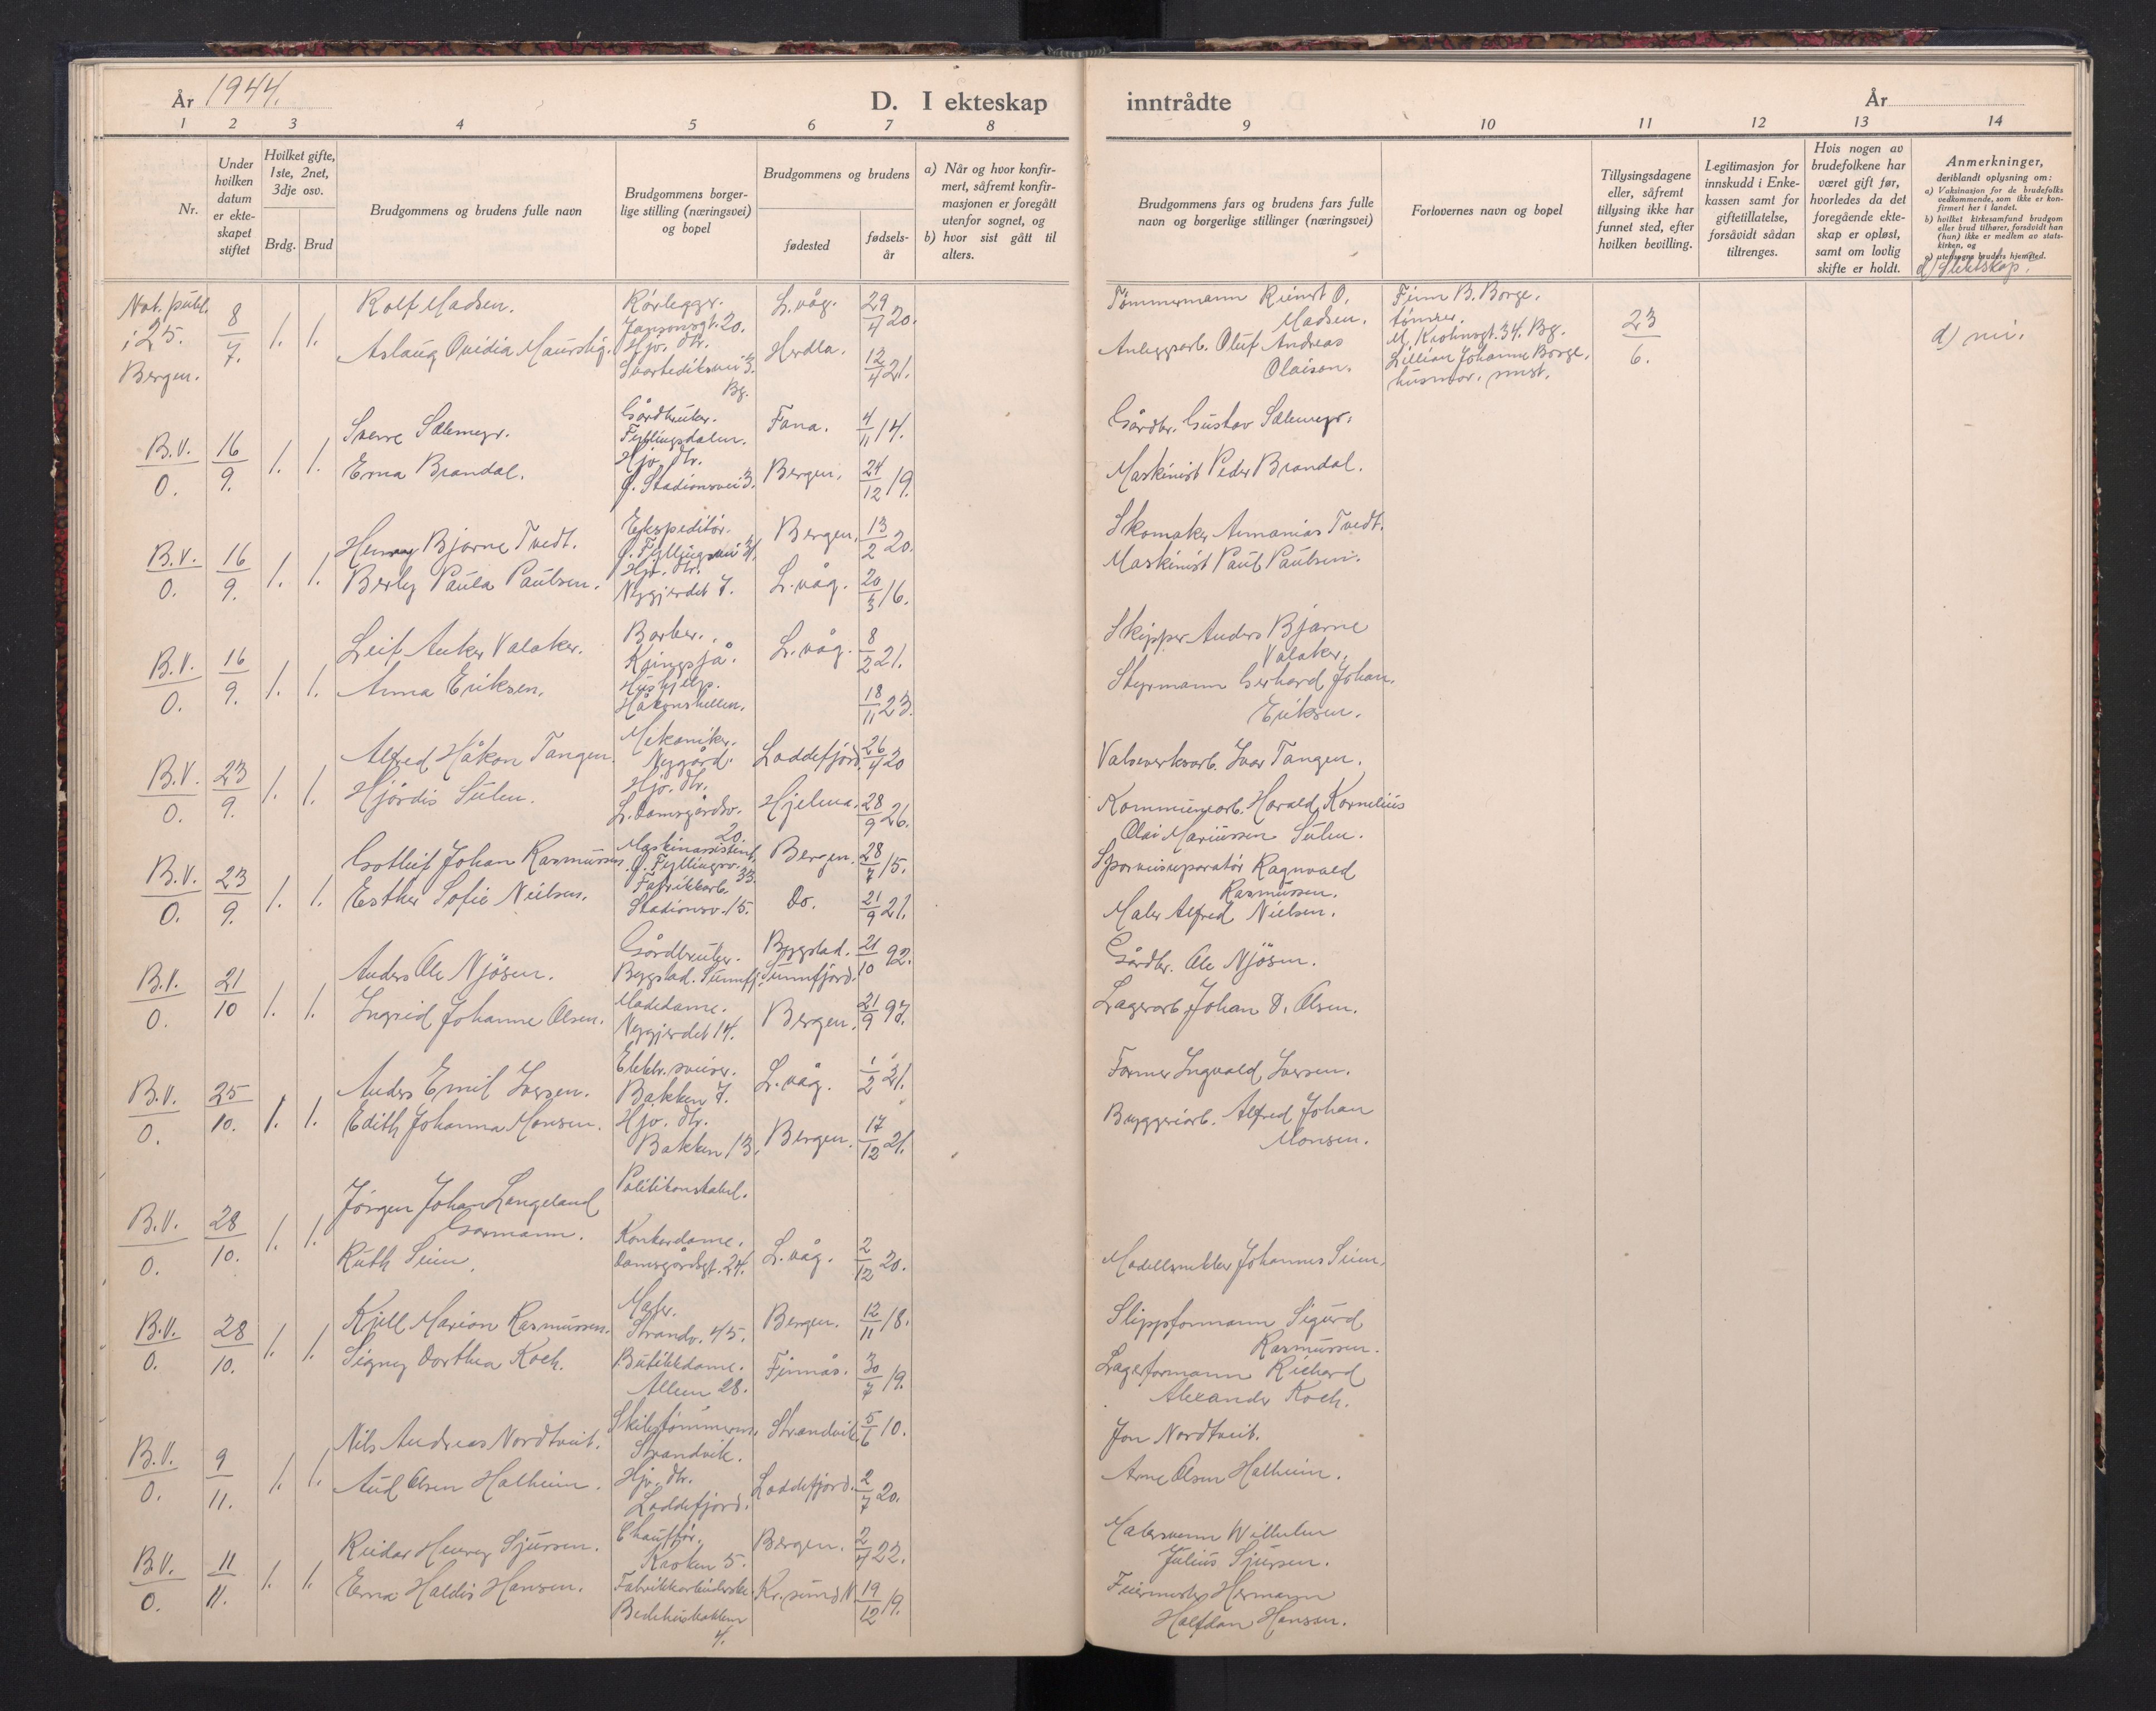 År 1944.
D. I ekteskap
inntrådte
År
1 2 3 4 5 6 7 8
9 10 11 12 13 14
Nr.
Under hvilken datum er ekteskapet stiftet
Hvilket gifte, 1ste, 2net, 3dje osv.
Brdg. Brud
Brudgommens og brudens fulle navn
Brudgommens borgerlige stilling (næringsvei) og bopel
Brudgommens og brudens
fødested
fødselsår
a) Når og hvor konfirmert, såfremt konfirmasjonen er foregått utenfor sognet, og
b) hvor sist gått til alters.
Brudgommens fars og brudens fars fulle navn og borgerlige stillinger (næringsvei)
Forlovernes navn og bopel
Tillysingsdagene eller, såfremt tillysing ikke har funnet sted, efter hvilken bevilling.
Legitimasjon for innskudd i Enkekassen samt for giftetillatelse, forsåvidt sådan tiltrenges.
Hvis nogen av brudefolkene har været gift før, hvorledes da det foregående ekteskap er opløst, samt om lovlig skifte er holdt.
Anmerkninger, deriblandt oplysning om:
a) Vaksinasjon for de brudefolks vedkommende, som ikke er konfirmert her i landet.
b) hvilket kirkesamfund brudgom eller brud tilhører, forsåvidt han (hun) ikke er medlem av statskirken, og
c) utensogns bruders hjemsted.
d) Slektskap.
Not. publ. i 25. Bergen.
8/7. 1. 1.
Rolf Madsen.
Rørlegger.
Jansonsgt. 20.
L.våg. 29/4 20.
Aslaug Ovidia Maurstig.
Hjv. dtr.
Svartediksvei 3. Bg.
Herdla. 12/4 21.
Tømmermann Reinert O. Madsen.
Anleggsarb. Oluf Andreas Olaisen.
Finn B. Borge.
tømrer.
M. Krohnsgt. 34. Bg.
Lillian Johanne Borge.
husmor. smst.
23/6.
d) nei.
B.V. 0. 16/9. 1. 1.
Sverre Sælemyr.
Gårdbruker.
Fyllingsdalen.
Fana. 4/11 14.
Erna Brandal.
Hjv. dtr.
Ø. Stadionsvei 3.
Bergen. 24/12 19.
Gårdbr. Gustav Sælemyr.
Maskinist Peder Brandal.
B.V. 0. 16/9. 1. 1.
Henry Bjarne Tvedt.
Ekspeditør.
Bergen. 13/2 20.
Berly Paula Paulsen.
Hjv. dtr.
Nygjerdet 7.
L.våg. 20/3 16.
Skomaker Annanias Tvedt.
Maskinist Paul Paulsen.
B.V. 0. 16/9. 1. 1.
Leif Anker Valaker.
Barber.
Kringsjå.
L.våg. 8/2 21.
Anna Eriksen.
Hushjelp.
Håkonshellen.
18/11 23.
Skipper Anders Bjarne Valaker.
Styrmann Gerhard Johan Eriksen.
B.V. 0. 23/9. 1. 1.
Alfred Håkon Tangen.
Mekaniker.
Nygård.
Loddefjord. 26/4 20
Hjørdis Sulen.
Hjv. dtr.
L. Damsgårdsv. 20.
Hjelma. 28/9 26.
Valseverksarb. Ivar Tangen.
Kommunearb. Harald Kornelius
Olai Mariussen Sulen.
B.V. 0. 23/9. 1. 1.
Gotleif Johan Rasmussen
Maskinassistent.
Ø. Fyllingsv. 33.
Bergen. 28/7 15.
Esther Sofie Nielsen.
Fabrikkarb.
Stadionsv. 15.
Do. 21/9 21.
Sporveisreparatør Ragnvald Rasmussen.
Maler Alfred Nielsen.
B.V. 0. 21/10 1. 1.
Anders Ole Njøsen.
Gårdbruker.
Bygstad. Sunnfj.
Bygstad. Sunnfjord. 21/10 92.
Ingrid Johanne Olsen.
Motedame.
Nygjerdet 14.
Bergen. 21/9 97.
Gårdbr. Ole Njøsen.
Lagerarb. Johan D. Olsen.
B.V. 0. 25/10. 1. 1.
Anders Emil Iversen.
Elektr. sveiser.
Bakken 7.
L.våg. 1/2 21.
Edith Johanna Monsen.
Hjv. dtr.
Bakken 13.
Bergen. 17/12 21.
Former Ingvald Iversen.
Bryggeriarb. Alfred Johan Monsen.
B.V. 0. 28/10. 1. 1.
Jørgen Johan Langeland Gormann.
Politikonstabel.
Ruth Seim.
Kontordame.
Damsgårdsgt. 24.
L.våg. 2/12 20.
Modellsnekker Johannes Seim.
B.V. 0. 28/10. 1. 1.
Kjell Marion Rasmussen.
Maler.
Strandv. 45.
Bergen. 12/11 18.
Signy Dorthea Koch.
Butikkdame.
Alleen 28.
Finnås. 30/7 19.
Slippformann Sigurd Rasmussen.
Lagerformann Richard
Alexander Koch.
B.V. 0. 9/11. 1. 1.
Nils Andreas Nordtveit.
Skibstømmerm.
Strandvik.
Strandvik. 5/6 10.
Aud Olsen Halheim.
Hjv. dtr.
Loddefjord.
Loddefjord. 2/7 20.
Jon Nordtveit.
Arne Olsen Halheim.
B.V. 0. 11/11. 1. 1.
Reidar Henry Sjursen.
Chauffør.
Kroken 5.
Bergen. 2/7 22.
Erna Haldis Hansen.
Fabrikkarbeiderske.
Bedehusbakken 4.
Kr.sund N 19/12 19.
Malersvenn Wilhelm
Julius Sjursen.
Feiermester Hermann
Halfdan Hansen.